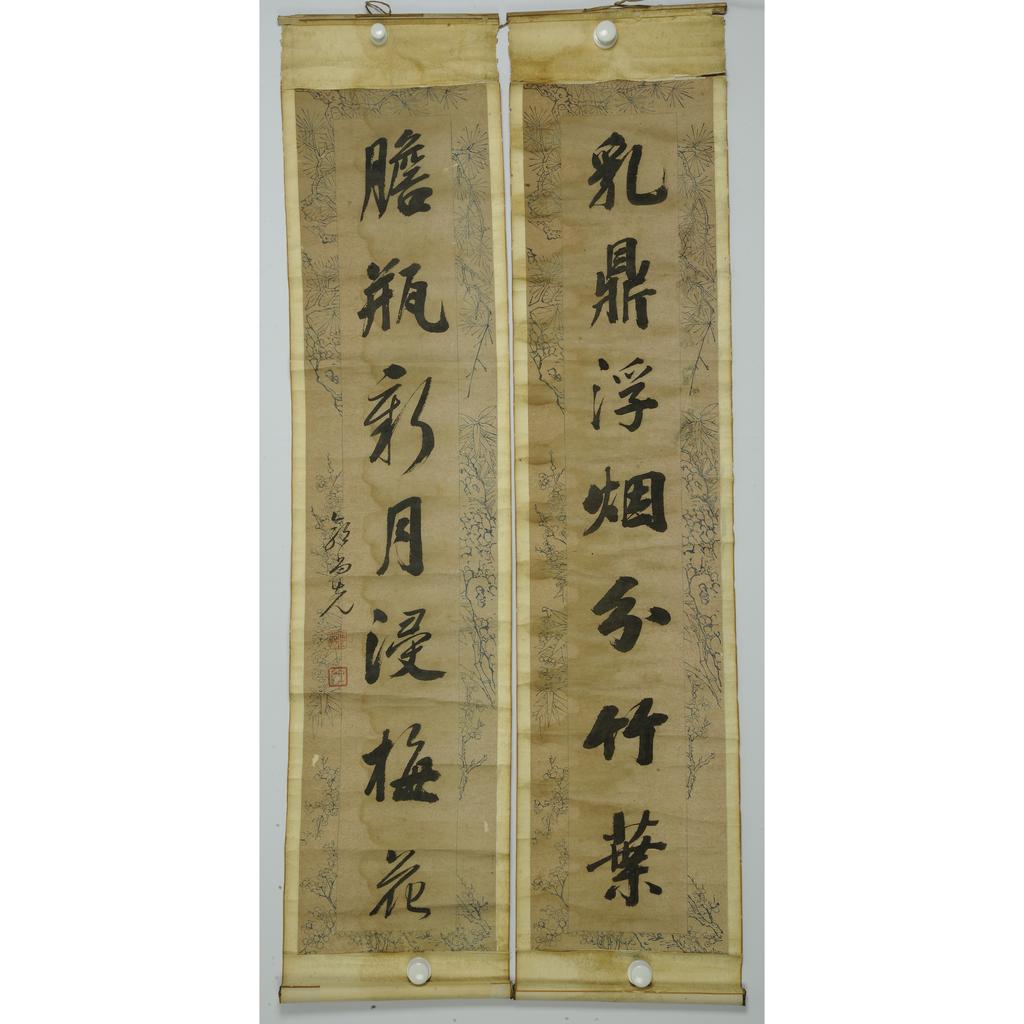 乳鼎浮烟分竹葉
膽瓶新月浸梅花